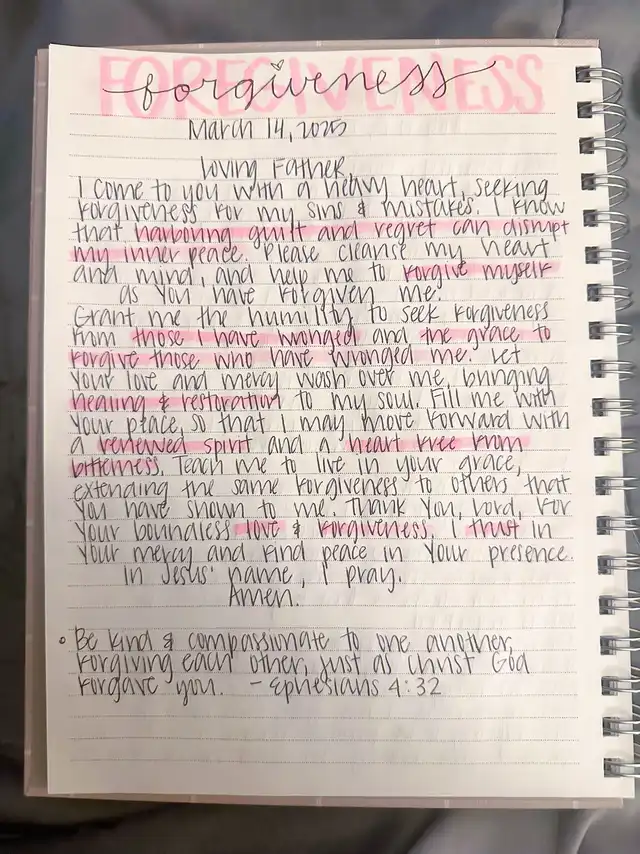 FORGIVENESS
forgiveness
March 14, 2025
Loving Father,
I come to you with a heavy heart, seeking
forgiveness for my sins & mistakes. I know
that harboring guilt and regret can disrupt
my inner peace. Please cleanse my heart
and mind, and help me to forgive myself
as you have forgiven me.
Grant me the humility to seek forgiveness
from those I have wronged and the grace to
forgive those who have wronged me. Let
your love and mercy wash over me, bringing
healing & restoration to my soul. Fill me with
your peace, so that I may move forward with
a renewed spirit and a heart free from
bitterness. Teach me to live in your grace,
extending the same forgiveness to others that
you have shown to me. Thank you, Lord, for
your boundless love & forgiveness. I trust in
your mercy and find peace in your presence.
In Jesus' name, I pray.
Amen.
Be kind & compassionate to one another,
forgiving each other, just as Christ God
forgave you. - Ephesians 4:32